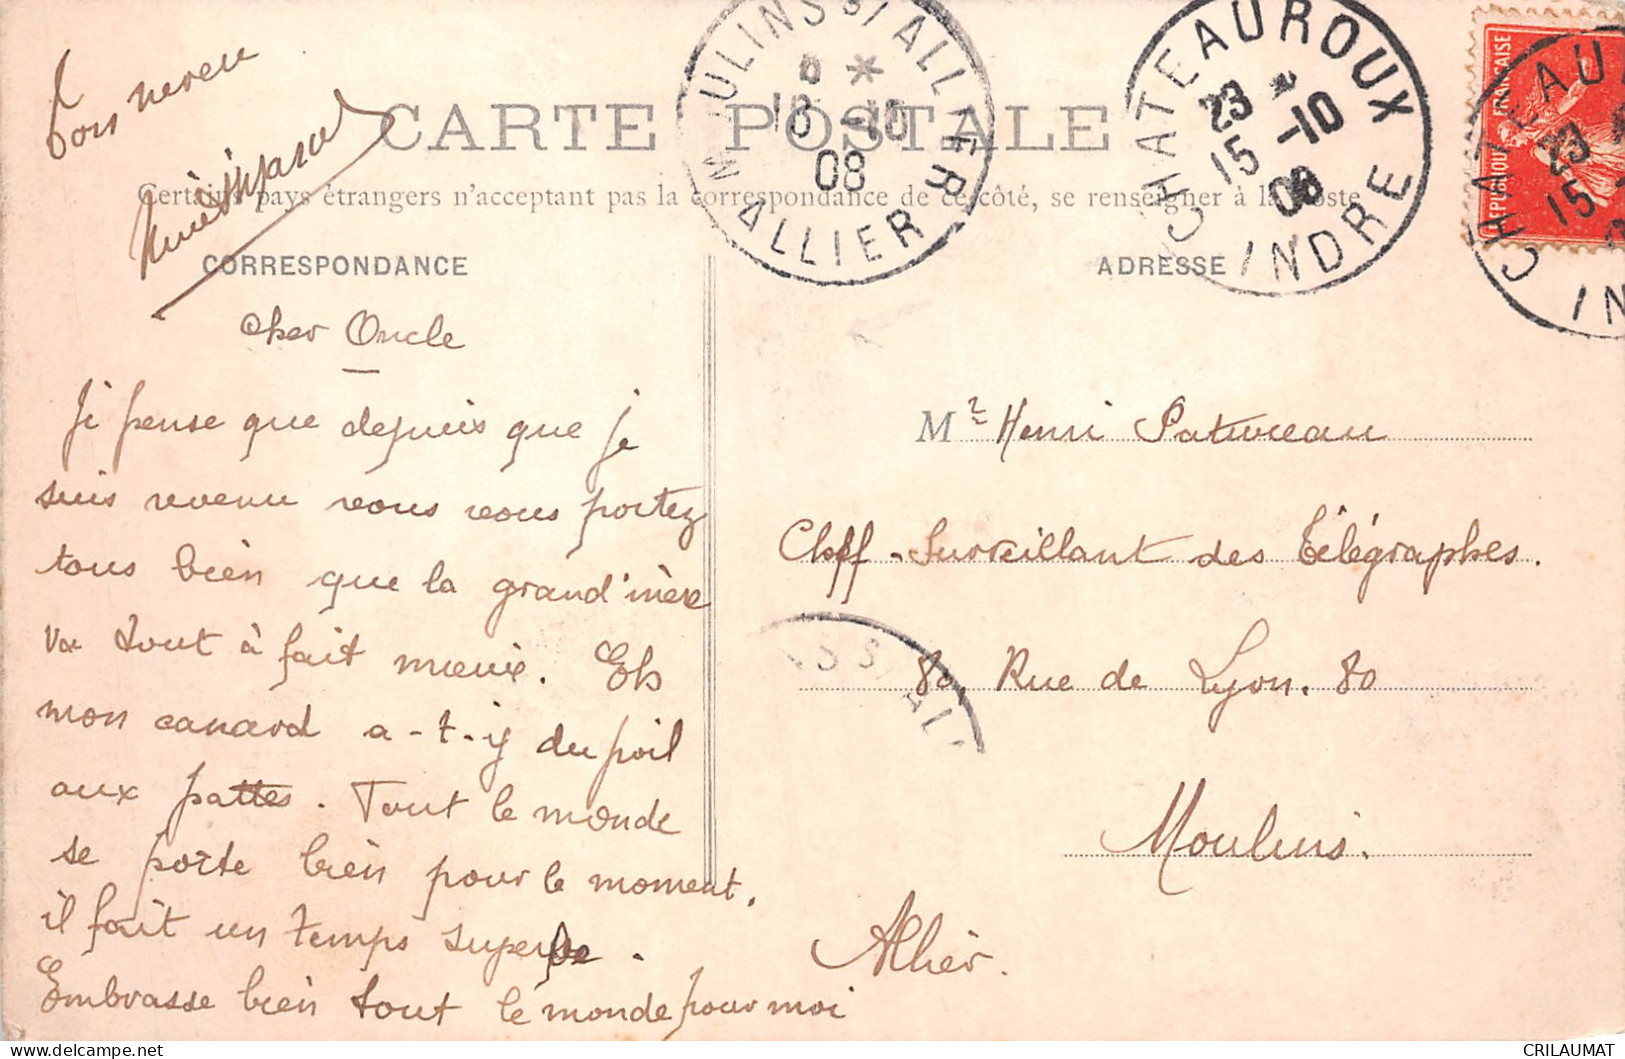 Ton neveu
CARTE POSTALE
Certains pays étrangers n'acceptant pas la correspondance de ce côté, se renseigner à la Poste
CORRESPONDANCE
Cher Oncle
Je pense que depuis que je
suis revenu vous vous portez
tous bien que la grand'mère
va tout à fait mieux. Eh
mon canard a-t-y du poil
aux pattes. Tout le monde
se porte bien pour le moment.
il fait un temps superbe.
Embrasse bien tout le monde pour moi
ADRESSE
Mr Henri Patureau
Cheff-Surveillant des Télégraphes.
80, Rue de Lyon. 80
Moulins.
Allier.
MOULINS S/ ALLIER
08
ALLIER
CHATEAUROUX
23 *
15 -10
08
INDRE
REPUBLIQUE FRANÇAISE
CHATEAU
23 *
15
IN
NS S/ ALL
CRILAUMAT